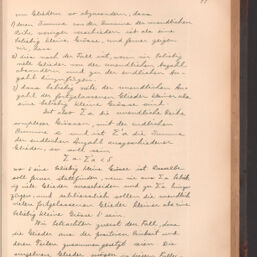 von Gliedern so abzusondern, dass
1) deren Summe von der Summe der unendlichen
Reihe weniger verschieden ist als eine
beliebig kleine Grösse, und ferner zeigen
wir, dass
2) dies noch der Fall ist, wenn wir beliebig
viele Glieder von der unendlichen Anzahl
absondern und zu der endlichen An-
zahl hinzufügen,
3) dass beliebig viele der unendlichen An-
zahl der Glieder kleiner als eine
beliebig kleine Grösse sind.
Ist also Σa die unendliche Reihe
complexer Grössen, mit der endlichen
Summe s und ist Σ'a die Summe
der endlichen Anzahl ausgeschiedener
Glieder, so soll sein
Σa - Σ'a < δ
wo δ eine beliebig kleine Grösse ist. Dasselbe
soll ferner stattfinden, wenn wir aus Σa belie-
big viele Glieder ausscheiden und zu Σ'a hinzu-
fügen, und schliesslich sollen die unendlich
vielen Glieder kleiner als eine
beliebig kleine Grösse sein.
Wir betrachten zuerst den Fall, dass
die Glieder aus der positiven Einheit und
deren Teilen zusammengesetzt seien. Die
Glieder mögen in diesem Falle